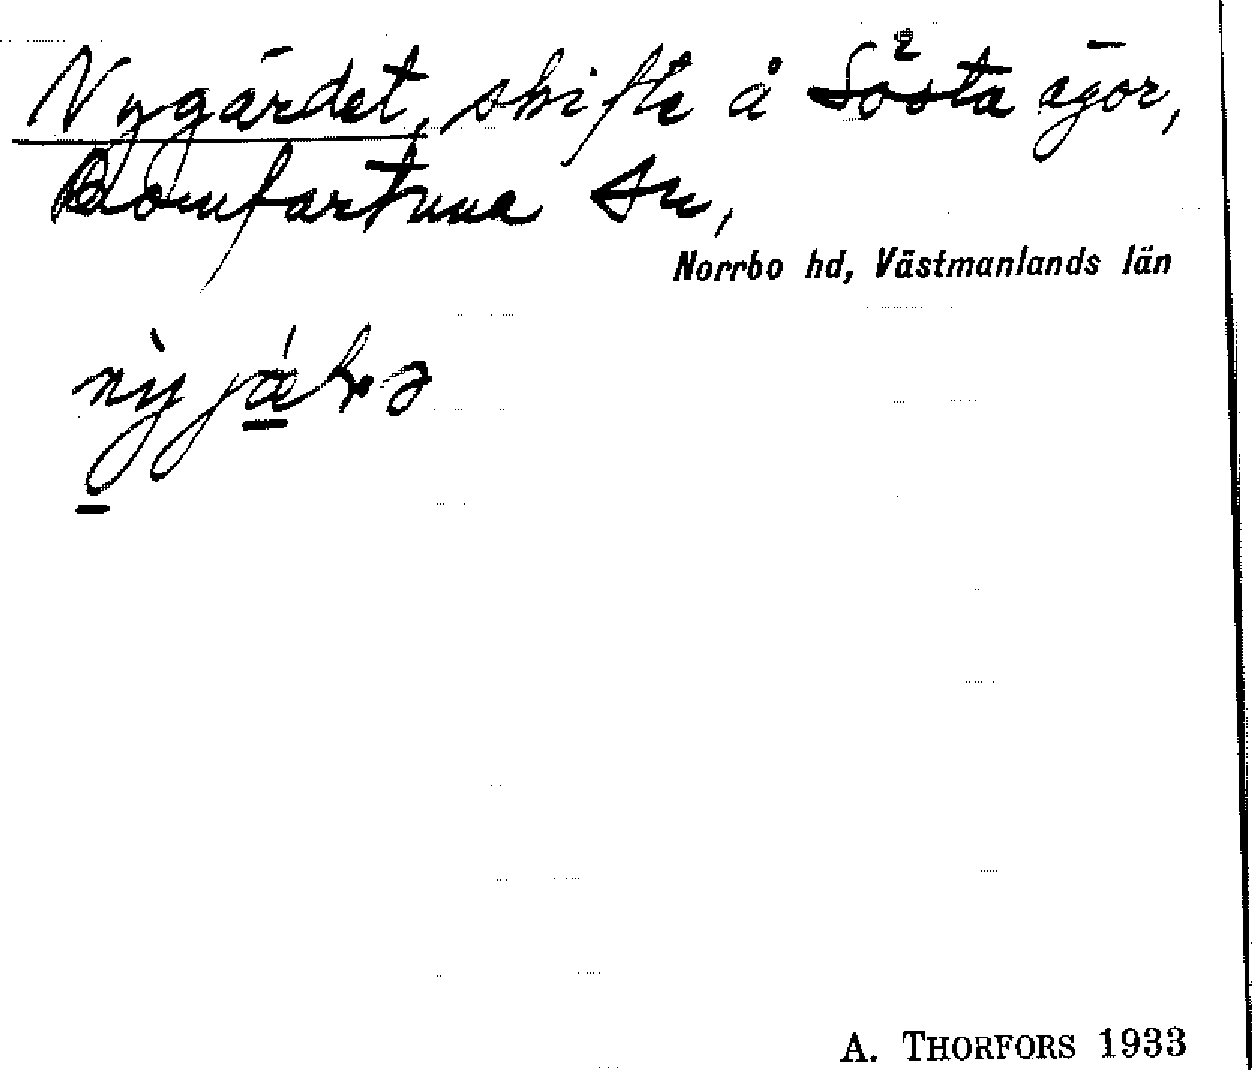 Nygärdet, skifte å Sösta ägor,
Romfartuna sn,
Norrbo hd, Västmanlands län
A. THORFORS 1933